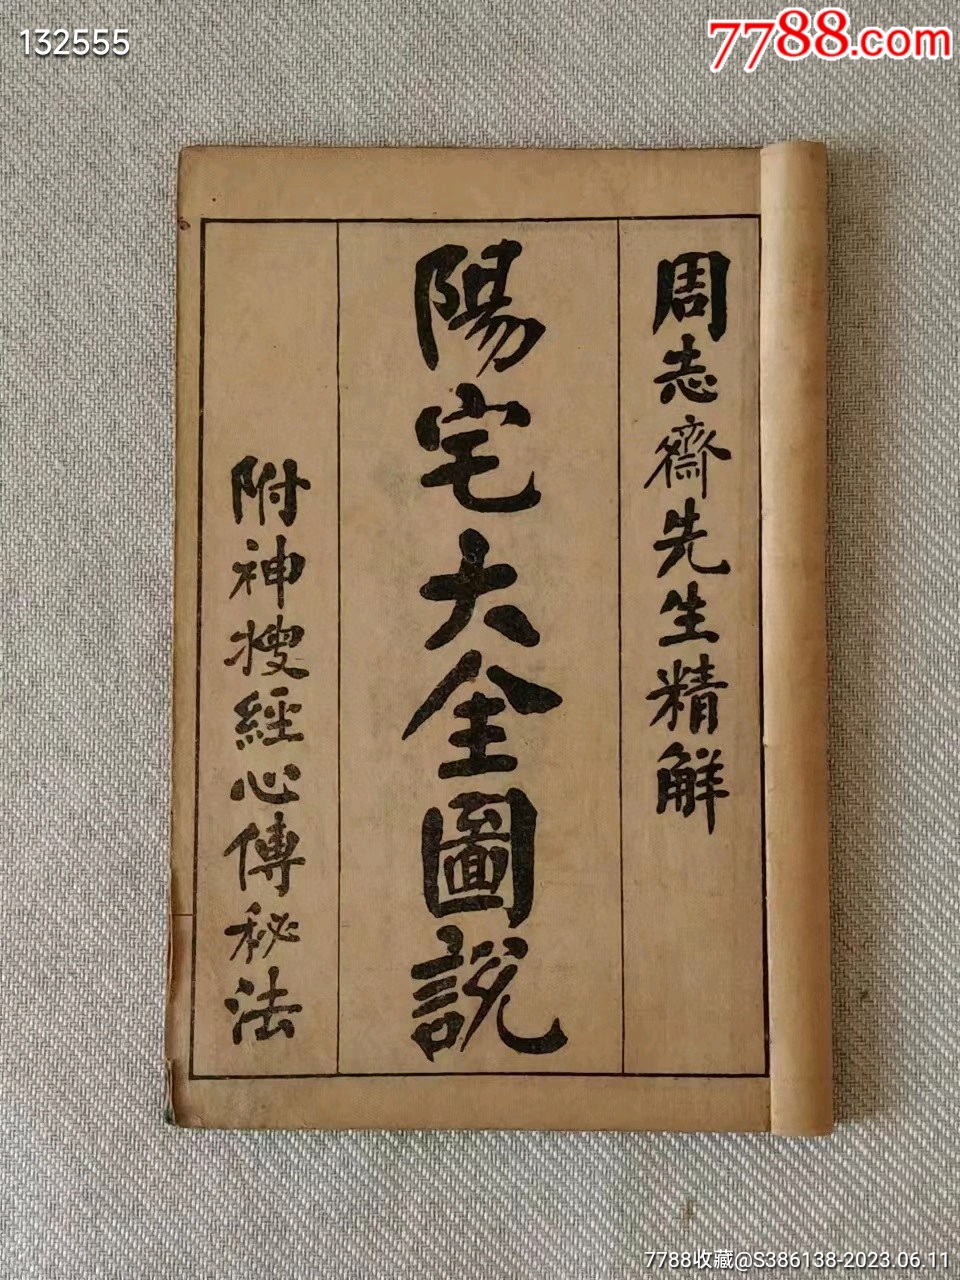 132555
7788.com
周志齋先生精解
陽宅大全圖說
附神搜經心傳秘法
7788收藏@S386138-2023.06.11